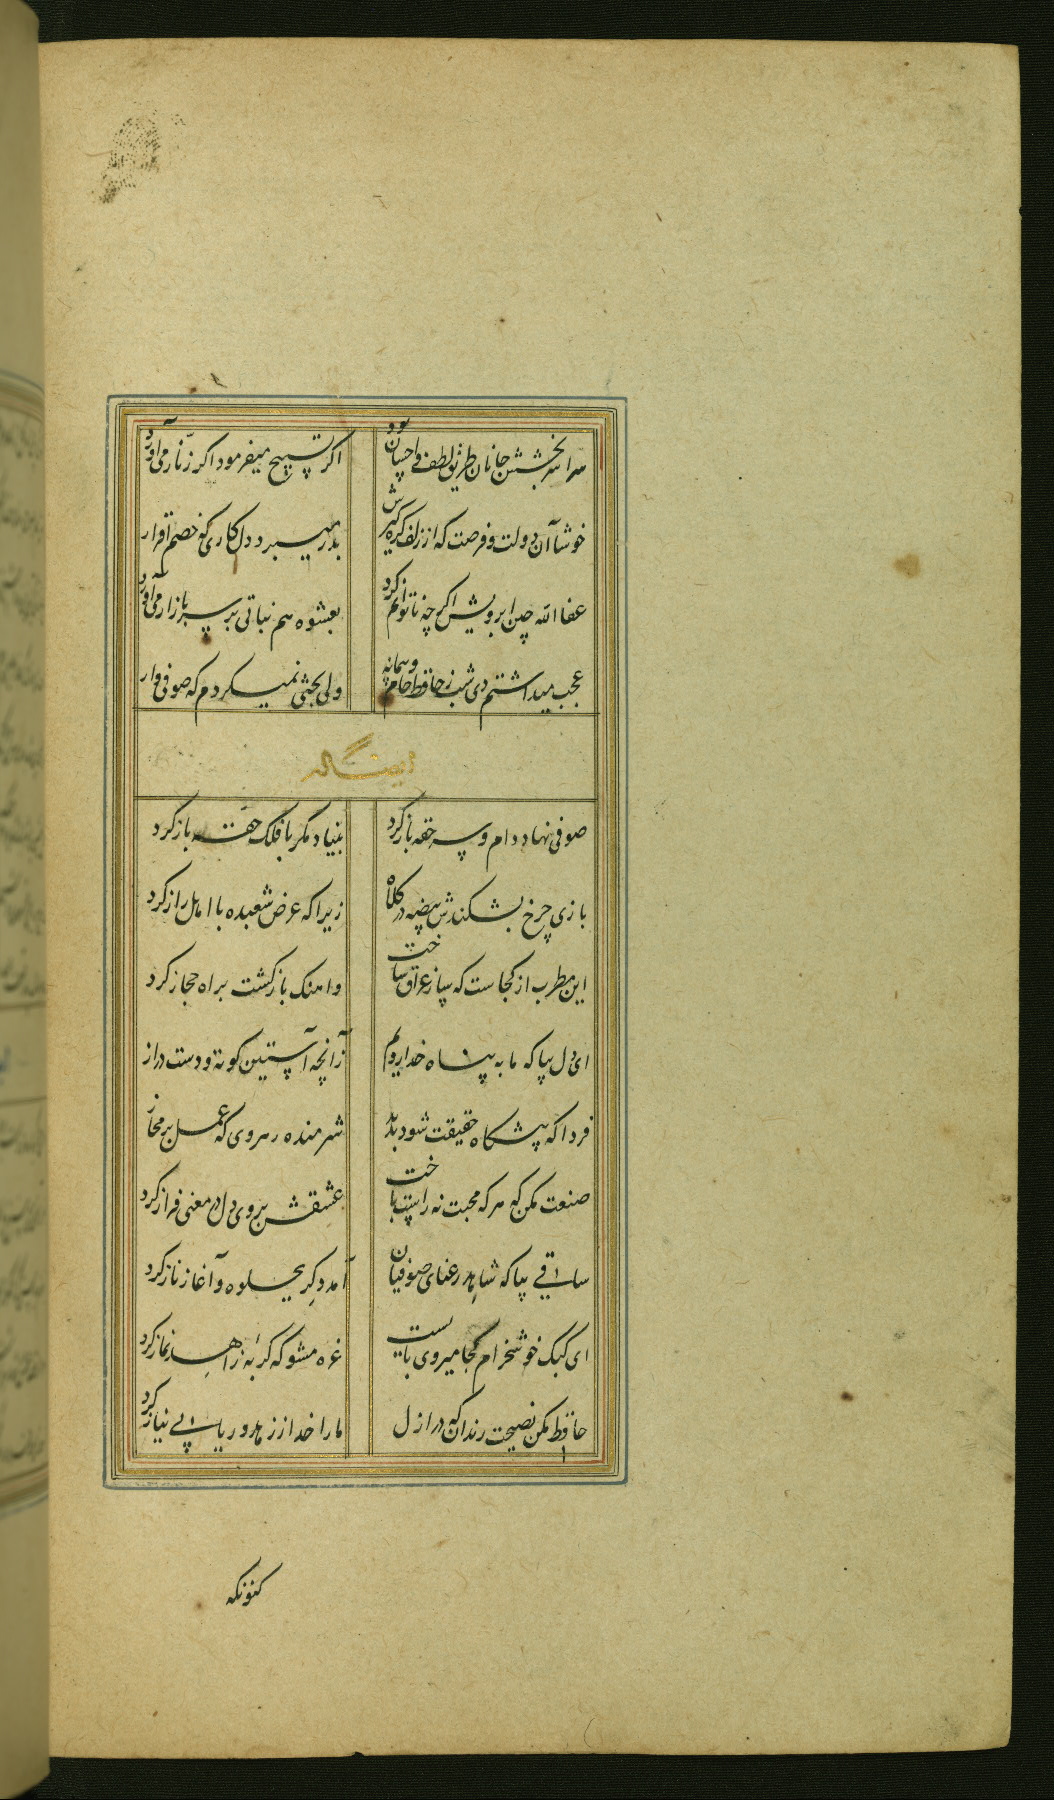 سراسر بخشش جانان طریق لطف و احسان بود اگر تسبیح میفرمود اگر زنار می آورد
خوشا آن دولت و فرصت که از زلف گره گیرش بدر میبرد دل کاری که خصم اقرار
عفا الله چین ابرویش اگرچه ناتوانم کرد بعشوه هم نباتی بر سر بازار می آورد
عجب میداشتم دی شب ز حافظ جام و پیمانه ولی بحثی نمیکردم که صوفی وار
صوفی نهاد دام و سر حقه باز کرد بنیاد مکر با فلک حقه باز کرد
بازی چرخ بشکندش بیضه در کلاه زیرا که عرض شعبده با اهل راز کرد
این مطرب از کجاست که ساز عراق ساخت واهنک بازگشت براه حجاز کرد
ای دل بیا که ما به پناه خدا رویم زانچه آستین کوته و دست دراز
فردا که پیشگاه حقیقت شود پدید شرمنده رهروی که عمل بر مجاز
صنعت مکن که هرکه محبت نه راست باخت عشقش بروی دل در معنی فراز کرد
ساقی بیا که شاهد رعنای صوفیان آمد دگر بجلوه و آغاز ناز کرد
ای کبک خوشخرام کجا میروی بایست غره مشو که گربه زاهد نماز کرد
حافظ مکن نصیحت رندان که در ازل ما را خدا از زهد و ریا بی نیاز کرد
کنونکه